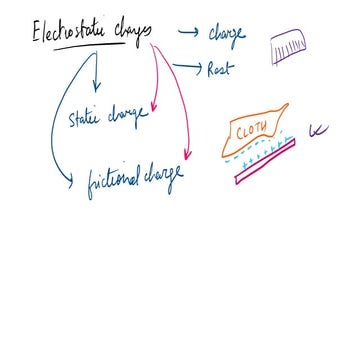 Electrostatic charges → charge
→ Rest
Static charge
CLOTH
frictional charge